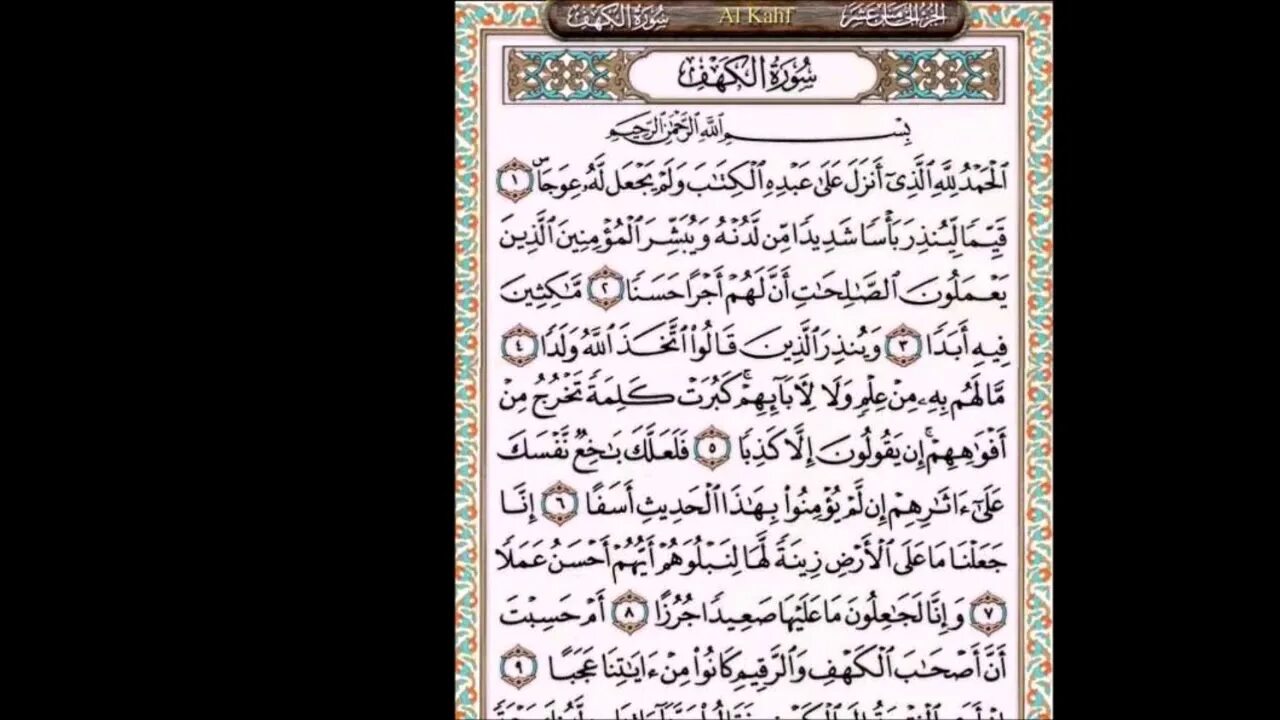 سُورَةُ الكَهْفِ Al Kahf الجُزْءُ الخَامِسُ عَشَرَ
سُورَةُ الكَهْفِ
بِسْمِ اللَّهِ الرَّحْمَٰنِ الرَّحِيمِ
ٱلْحَمْدُ لِلَّهِ ٱلَّذِىٓ أَنزَلَ عَلَىٰ عَبْدِهِ ٱلْكِتَٰبَ وَلَمْ يَجْعَل لَّهُۥ عِوَجَاۜ ١
قَيِّمًا لِّيُنذِرَ بَأْسًا شَدِيدًا مِّن لَّدُنْهُ وَيُبَشِّرَ ٱلْمُؤْمِنِينَ ٱلَّذِينَ
يَعْمَلُونَ ٱلصَّٰلِحَٰتِ أَنَّ لَهُمْ أَجْرًا حَسَنًا ٢ مَّٰكِثِينَ
فِيهِ أَبَدًا ٣ وَيُنذِرَ ٱلَّذِينَ قَالُوا۟ ٱتَّخَذَ ٱللَّهُ وَلَدًا ٤
مَّا لَهُم بِهِۦ مِنْ عِلْمٍ وَلَا لِءَابَآئِهِمْ ۚ كَبُرَتْ كَلِمَةً تَخْرُجُ مِنْ
أَفْوَٰهِهِمْ ۚ إِن يَقُولُونَ إِلَّا كَذِبًا ٥ فَلَعَلَّكَ بَٰخِعٌ نَّفْسَكَ
عَلَىٰٓ ءَاثَٰرِهِمْ إِن لَّمْ يُؤْمِنُوا۟ بِهَٰذَا ٱلْحَدِيثِ أَسَفًا ٦ إِنَّا
جَعَلْنَا مَا عَلَى ٱلْأَرْضِ زِينَةً لَّهَا لِنَبْلُوَهُمْ أَيُّهُمْ أَحْسَنُ عَمَلًا
٧ وَإِنَّا لَجَٰعِلُونَ مَا عَلَيْهَا صَعِيدًا جُرُزًا ٨ أَمْ حَسِبْتَ
أَنَّ أَصْحَٰبَ ٱلْكَهْفِ وَٱلرَّقِيمِ كَانُوا۟ مِنْ ءَايَٰتِنَا عَجَبًا ٩